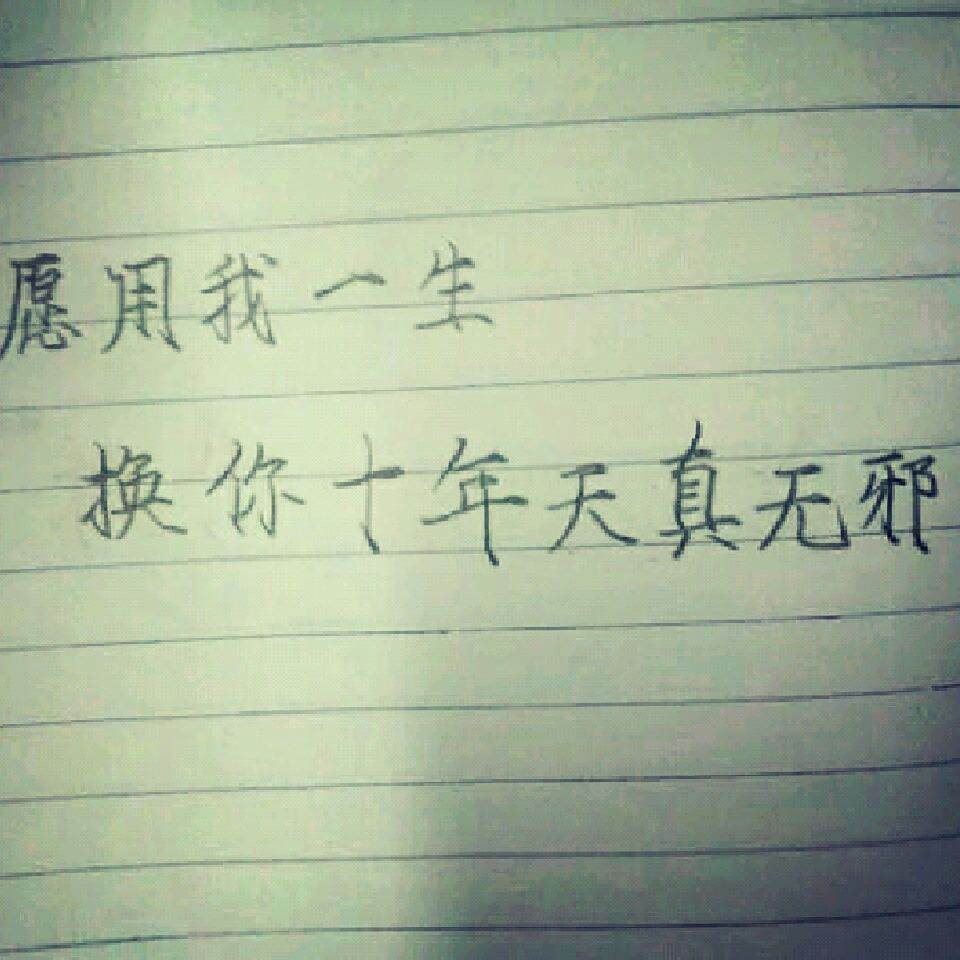 愿用我一生
换你十年天真无邪